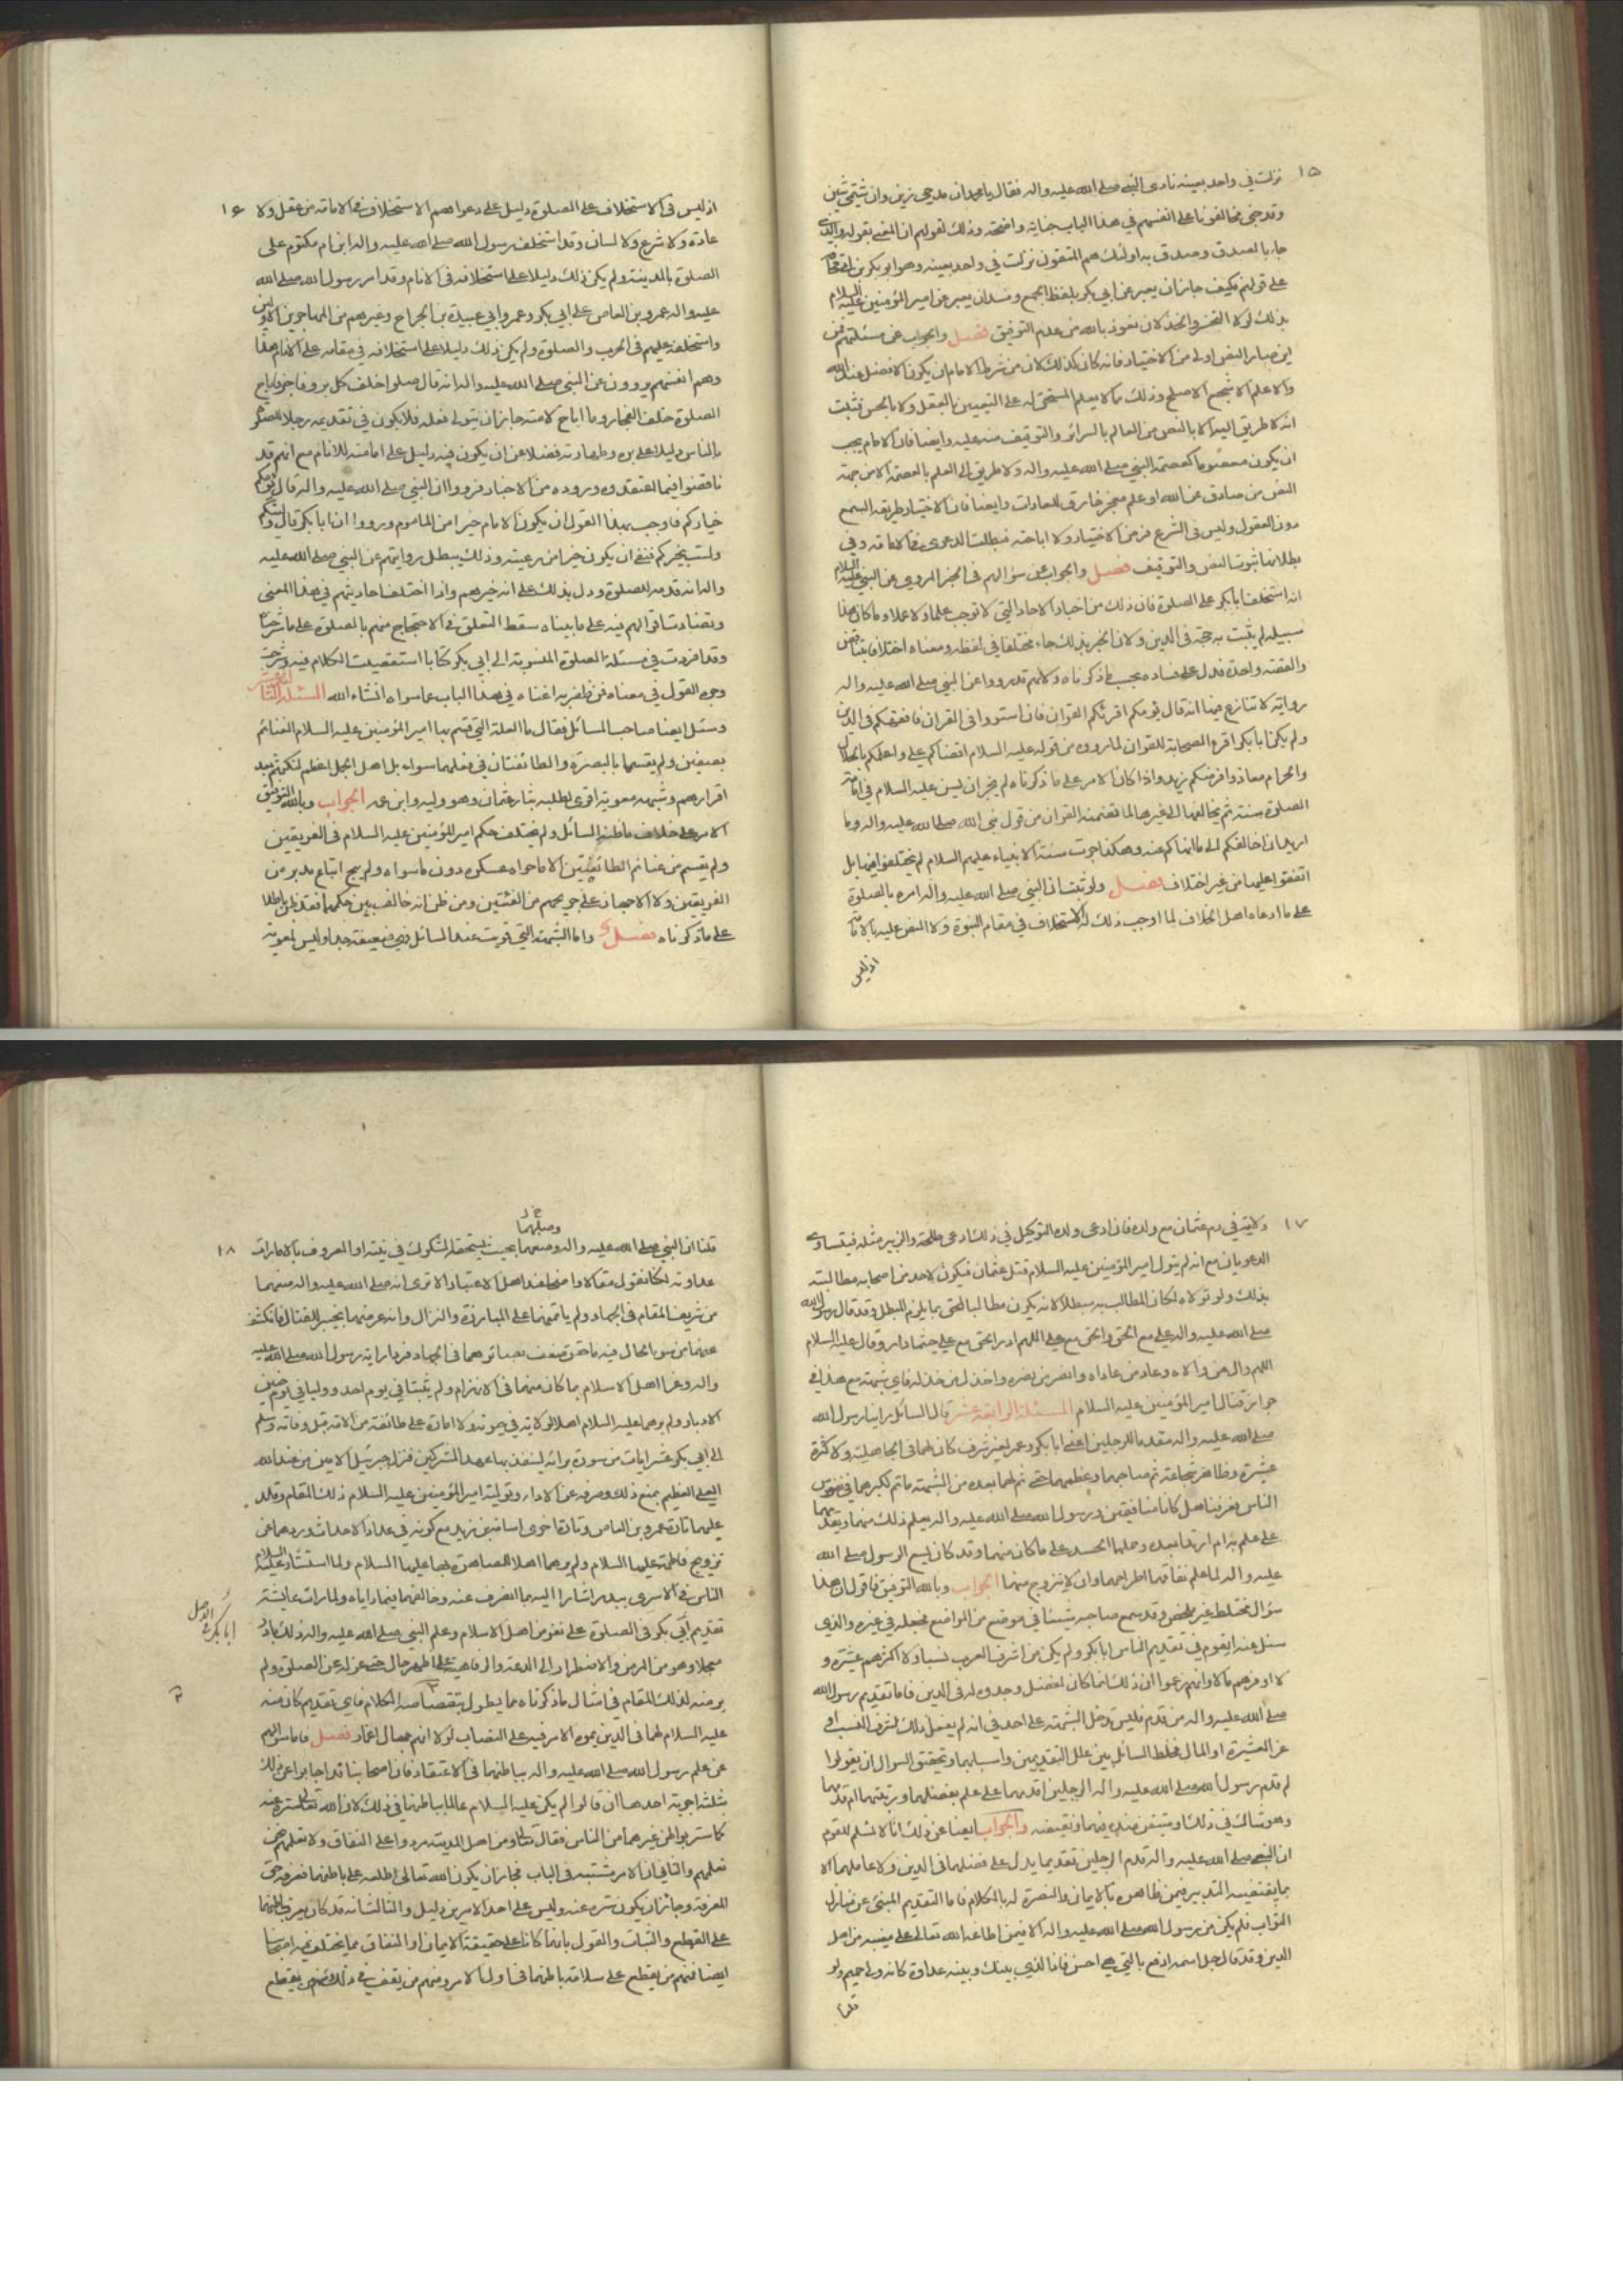 ١٥
نزلت في واحد بعينه نادى النبي صلى الله عليه واله فقال يا محمد ان مدحي زين وان شتمي شين
وقد جنى مخالفونا على انفسهم في هذا الباب جناية واضحة وذلك لقولهم ان المعني بقوله والذي
جاء بالصدق وصدق به اولئك هم المتقون نزلت في واحد بعينه وهو ابو بكر بن ابي قحافة
على قولهم فكيف جاز ان يعبر عن ابي بكر بلفظ الجمع وفسد ان يعبر عن امير المؤمنين عليه السلام
بذلك لولا التحير والخذلان نعوذ بالله من عدم التوفيق فصل والجواب عن مسئلتهم من
اين صار النص اولى من الاختيار فانه كان كذلك لان من شرط الامام ان يكون الافضل عند الله
والاعلم الاشجع الاصلح وذلك ما لا يعلم المستحق له على التعيين بالعقل ولا بالحس فثبت
انه لا طريق اليه الا بالنص من العالم بالسرائر والتوقيف منه عليه وايضا فان الامام يجب
ان يكون معصوما كعصمة النبي صلى الله عليه واله ولا طريق الى العلم بالعصمة الا من جهة
النص من صادق عن الله او علم معجز خارق للعادات وايضا فان الاختيار طريقه السمع
دون العقول وليس في الشرع فرض الاختيار ولا اباحته فبطلت الدعوى في الامامة وفي
بطلانها ثبوت النص والتوقيف فصل والجواب عن سؤالهم في الخبر المروي عن النبي عليه السلام
انه استخلف ابا بكر على الصلوة فان ذلك من اخبار الاحاد التي لا توجب علما ولا عملا وما كان هذا
سبيله لم يثبت به حجة في الدين ولان الخبر بذلك جاء مختلفا في لفظه ومعناه اختلاف يتناقض
والقصة واحدة فدل على فساده بحسب ما ذكرناه ولانهم قد رووا عن النبي صلى الله عليه واله
رواية لا تنازع فيها انه قال يؤمكم اقرئكم القران فان استووا في القران فافقهكم في الدين
ولم يكن ابا بكر اقرء الصحابة للقران لما رووه من قوله عليه السلام اقضاكم علي واعلمكم بالحلال
والحرام معاذ وافرضكم زيد واذا كان الامر على ما ذكرناه لم يجز ان يسن عليه السلام في امامة
الصلوة سنة ثم يخالفها الى غيرها لما تضمنه القران من قول نبي الله صلى الله عليه واله وما
اريد ان اخالفكم الى ما انهاكم عنه وهكذا جرت سنة الانبياء عليهم السلام لم يختلفوا فيها بل
اتفقوا عليها من غير اختلاف فصل ولو ثبت ان النبي صلى الله عليه واله امره بالصلوة
على ما ادعاه اهل الخلاف لما اوجب ذلك له الاستخلاف في مقام النبوة ولا النص عليه بالامامة
اذ ليس
١٦
اذ ليس في الاستخلاف على الصلوة دليل على دعواهم الاستخلاف في الامامة من عقل ولا
عادة ولا شرع ولا لسان وقد استخلف رسول الله صلى الله عليه واله ابن ام مكتوم على
الصلوة بالمدينة ولم يكن ذلك دليلا على استخلافه في الانام وقد امر رسول الله صلى الله
عليه واله عمرو بن العاص على ابي بكر وعمر وابي عبيدة بن الجراح وغيرهم من المهاجرين الاولين
واستخلفه عليهم في الحرب والصلوة ولم يكن ذلك دليلا على استخلافه في مقامه على الانام هذا
وهم انفسهم يروون عن النبي صلى الله عليه واله انه قال صلوا خلف كل بر وفاجر فاباح
الصلوة خلف الفجار وما اباح لامته جاز ان يتولى فعله فلا يكون في تقديمه رجلا للصلوة
بالناس دليلا على بره وطهارته فضلا عن ان يكون فيه دليل على امامته للانام مع انهم قد
ناقضوا فيما اعتقدوه ورووه من الاخبار فرووا ان النبي صلى الله عليه واله قال يؤمكم
خياركم فاوجب بهذا القول ان يكون الامام خيرا من الماموم ورووا ان ابا بكر قال وليتكم
ولست بخيركم فنفى ان يكون خيرا من رعيته وذلك يبطل روايتهم عن النبي صلى الله عليه
واله انه قدمه للصلوة ودل بذلك على انه خيرهم واذا اختلف احاديثهم في هذا المعنى
وتضادت اقوالهم فيه على ما بيناه سقط التعلق في الاحتجاج منهم بالصلوة على ما شرحناه
وقد افردت في مسئلة الصلوة المنسوبة الى ابي بكر كتابا استقصيت الكلام فيه وشرحت
وجوه القول في معناه فمن ظفر به اغناه في هذا الباب عما سواه انشاء الله المسئلة الثالثة عشر
وسئل ايضا صاحب المسائل فقال ما العلة التي قسم بها امير المؤمنين عليه السلام الغنائم
بصفين ولم يقسمها بالبصرة والطائفتان في فعلهما سواء بل اهل الجمل اعظم لنكثهم بعد
اقرارهم وشبهة معوية اقوى لطلبه بثار عثمان وهو وليه وابن عمه الجواب وبالله التوفيق
الامر على خلاف ما ظنه السائل ولم يختلف حكم امير المؤمنين عليه السلام في الفريقين
ولم يقسم من غنائم الطائفتين الا ما حواه عسكره دون ما سواه ولم يبح اتباع مدبر من
الفريقين ولا الاجهاز على جريحهم من الفئتين ومن ظن انه خالف بين حكمهما فقد ظن باطلا
على ما ذكرناه فصل واما الشبهة التي قويت عند السائل فهي ضعيفة جدا وليس لمعوية
١٧
ولاية في دم عثمان مع ولده فان ادعى ولده التوكيل في ذلك ادعى طلحة والزبير مثله فيتساوى
الدعويان مع انه لم يتول امير المؤمنين عليه السلام قتل عثمان فيكون لاحد من اصحابه مطالبته
بذلك ولو تولاه لكان المطالب به مبطلا لانه يكون مطالبا لمحق بما يلزم المبطل وقد قال رسول الله
صلى الله عليه واله علي مع الحق والحق مع علي اللهم ادر الحق مع علي حيثما دار وقال عليه السلام
اللهم وال من والاه وعاد من عاداه وانصر من نصره واخذل من خذله فاي شبهة مع هذا في
جواز قتال امير المؤمنين عليه السلام المسئلة الرابعة عشر قال السائل راينا رسول الله
صلى الله عليه واله مقدما للرجلين اعني ابا بكر وعمر لغير شرف كان لهما في الجاهلية ولا كثرة
عشيرة وظاهر شجاعة ثم صاحبهما وعظمهما حتى تم لهما بعده من الشبهة ما تم لكبرهما في نفوس
الناس تعرفنا هل كانا منافقين ورسول الله صلى الله عليه واله يعلم ذلك منهما ويقدمهما
على علم به ام ارتدا بعده وحملهما الحسد على ما كان منهما وقد كان يسع الرسول صلى الله
عليه واله لما علم نفاقهما اطراحهما وان لا يتزوج منهما الجواب وبالله التوفيق فاقول ان هذا
سؤال مختلط غير ملخص وقد سمع صاحبه شيئا في موضع من المواضع فجعله في غيره والذي
سئل عنه القوم في تقديم الناس ابا بكر ولم يكن من اشرف العرب نسبا ولا اكثرهم عشيرة و
لا اوفرهم مالا وانهم زعموا ان ذلك انما كان لفضل وجدوه له في الدين فاما تقديم رسول الله
صلى الله عليه واله من قدم فليس دخل الشبهة على احد في انه لم يفعل ذلك لشرف النسب او
عز العشيرة او المال فخلط السائل بين علل التقديمين واسبابهما وتحقيق السوال ان يقولوا
لم قدم رسول الله صلى الله عليه واله الرجلين اقدمهما على علم بفضلهما وبرتبتهما ام قدمهما
وهو شاك في ذلك او متيقن ضده فيهما ونقيضه والجواب ايضا عن ذلك انا لا نسلم للقوم
ان النبي صلى الله عليه واله قدم الرجلين تقديما يدل على فضلهما في الدين ولا عاملهما الا
بما يقتضيه التدبير فيمن ظاهره بالايمان والنصرة له بالكلام فاما التقديم المبني عن منازل
الثواب فلم يكن من رسول الله صلى الله عليه واله الا فيمن اطاعه الله تعالى على مغيبه من اهل
الدين وقد قال جل اسمه ادفع بالتي هي احسن فاذا الذي بينك وبينه عداوة كانه ولي حميم ولو
قلنا
١٨
وصلهما
قلنا ان النبي صلى الله عليه واله وضعهما بحيث يستحقه المشكوك في نيته او المعروف بالامارات
عداوته لكنا نقول مقالا واضحا عند اهل الاعتبار الا ترى انه صلى الله عليه واله منعهما
من شريف المقام في الجهاد ولم ياتمنهما على المبارزة والنزال وانه عرضهما بخيبر للقتال فانكشف
عنهما من سوء الحال فيه ما حقق ضعف بصائرهما في الجهاد فردا راية رسول الله صلى الله عليه
واله وغرا اهل الاسلام بما كان منهما في الانهزام ولم يثبتا في يوم احد ووليا في يوم حنين
الادبار ولم يرهما عليه السلام اهلا لولاية في حيوته ولا امارة على طائفة من الامة قبل وفاته وسلم
الى ابي بكر عشر ايات من سورة برائة لينفذ بها عهد المشركين فنزل جبرئيل الامين من عند الله
العلي العظيم بمنع ذلك وصرفه عن الاداء وتوليته امير المؤمنين عليه السلام ذلك المقام وقلد
عليهما تارة عمرو بن العاص وتارة اخرى اسامة بن زيد مع كونه في عداد الاحداث وردهما عن
تزويج فاطمة عليها السلام ولم يرهما اهلا للمصاهرة بها عليها السلام ولما استشار عليه السلام
الناس في الاسرى ببدر اشارا اليه بما انصرف عنه وخالفهما فيما راياه ولما رات عايشة
تقديم ابي بكر في الصلوة على نفر من اهل الاسلام وعلم النبي صلى الله عليه واله ذلك بادر
معجلا وهو من المرض والاضطرار الى الدعة والرفاهية على اظهر حال حتى عزله عن الصلوة ولم
يرضه لذلك المقام في امثال ما ذكرناه مما يطول بتقصاصه الكلام فاي تقديم كان منه
عليه السلام لهما في الدين يموه الامر فيه على النصاب لولا انهم جهال اغمار فصل فاما سؤالهم
عن علم رسول الله صلى الله عليه واله بباطنهما في الاعتقاد فان اصحابنا قد اجابوا عن ذلك
بثلثة اجوبة احدها ان قالوا لم يكن عليه السلام عالما بباطنهما في ذلك لان الله تعالى ستره عنه
كما ستر بواطن غيرهما من الناس فقال تعالى ومن اهل المدينة مردوا على النفاق لا تعلمهم نحن
نعلمهم والثاني ان الامر مشتبه في الباب فجاز ان يكون الله تعالى اطلعه على باطنهما فعرفه حق
المعرفة وجائز ان يكون ستره عنه وليس على احد الامرين دليل والثالث انه قد كان يعرف باطنهما
على القطع والثبات والقول بانهما كانا على حقيقة الايمان او النفاق مما يختلف فيه اصحابنا
ايضا فمنهم من يقطع على سلامة باطنهما في اول الامر ومنهم من يقف في ذلك ومنهم من يقطع